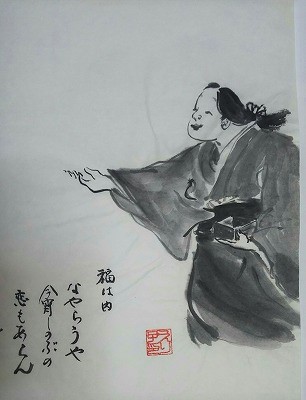 福は内
なやらうや
今宵しのぶの
恋もあらん